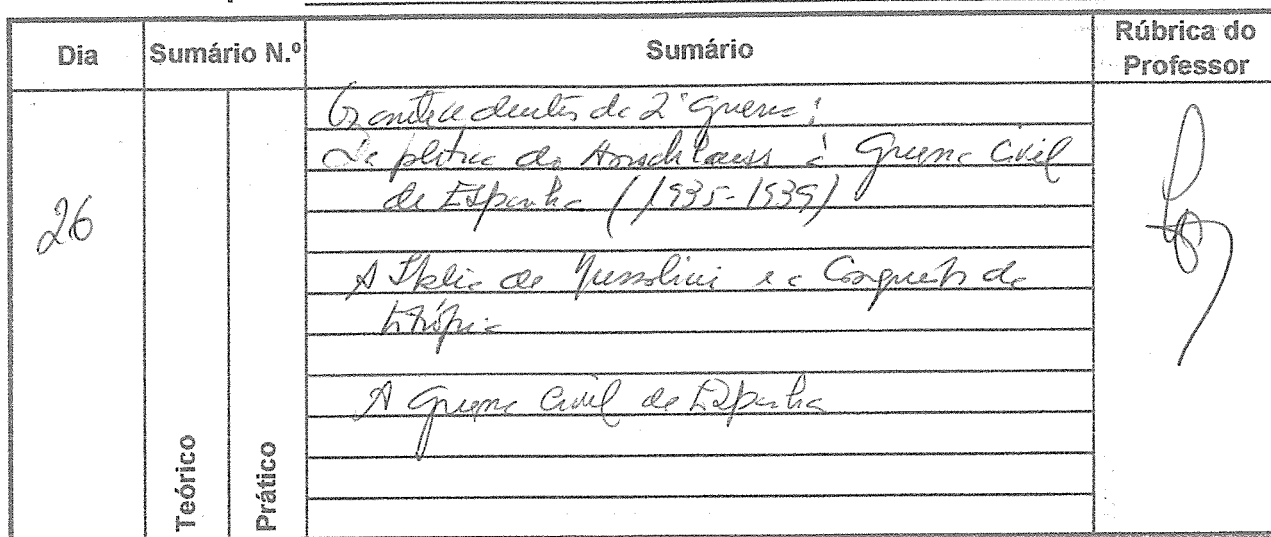 Dia Sumário N.º Sumário Rúbrica do Professor
Os antecedentes da 2ª Guerra:
Da política do Anschlauss à Guerra Civil
de Espanha (1935-1939)
26
A Itália de Mussolini e a Conquista da
Etiópia
A Guerra Civil de Espanha
Teórico
Prático